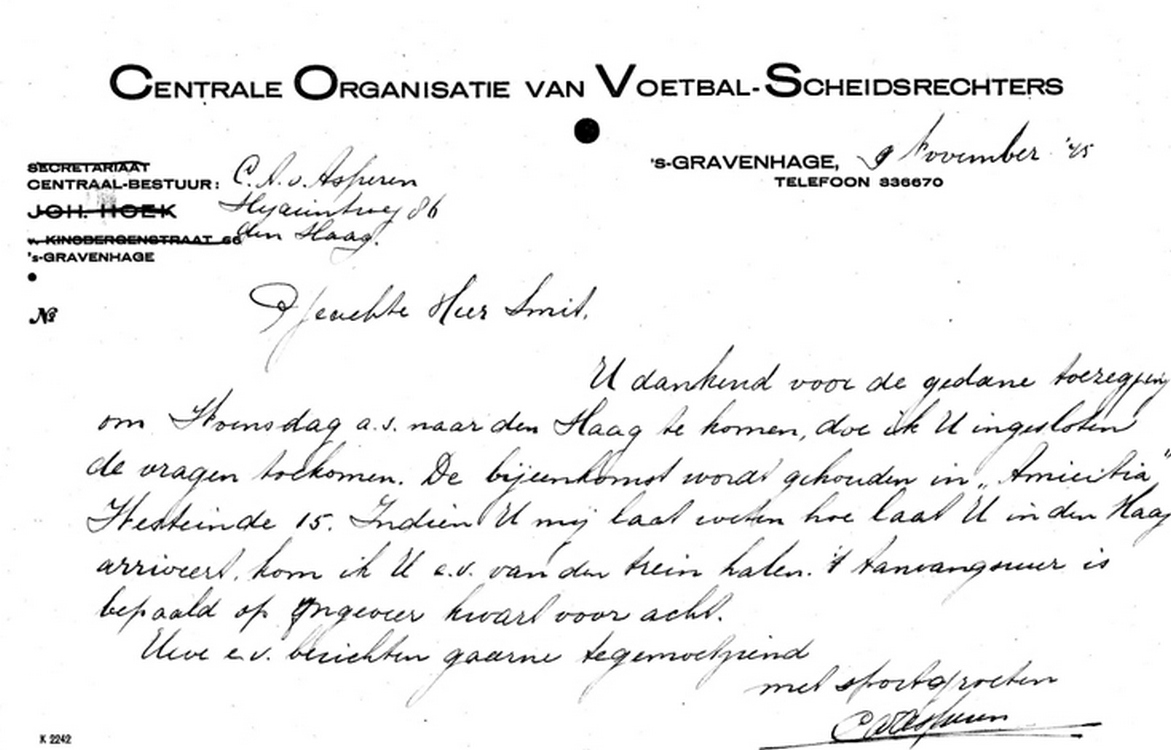 CENTRALE ORGANISATIE VAN VOETBAL-SCHEIDSRECHTERS
's-GRAVENHAGE, 9 November '45
TELEFOON 336670
SECRETARIAAT
CENTRAAL-BESTUUR: C. A. v. Asperen
JOH. HOEK Hyacintweg 86
v. KINSBERGENSTRAAT 66 den Haag.
's-GRAVENHAGE
№
Geachte Heer Smit.
U dankend voor de gedane toezegging
om Woensdag a.s. naar den Haag te komen, doe ik U ingesloten
de vragen toekomen. De bijeenkomst wordt gehouden in „Amicitia"
Westeinde 15. Indien U mij laat weten hoe laat U in den Haag
arriveert, kom ik U e.v. van den trein halen. 't Aanvangsuur is
bepaald op ongeveer kwart voor acht.
Uwe e.v. berichten gaarne tegemoetziend
met sportgroeten
CAvAsperen
K 2242